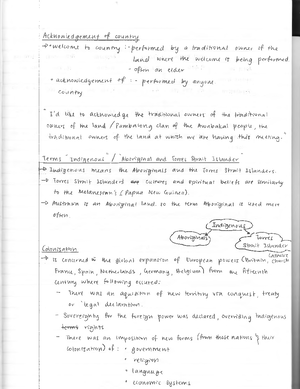 Acknowledgement of country
→ welcome to country : - performed by a traditional owner of the
land where the welcome is being performed
- often an elder
• acknowledgement of : - performed by anyone
country
"I'd like to acknowledge the traditional owners of the traditional
owners of the land / Pambalong clan of the Awabakal people, the
traditional owners of the land at which we are having this meeting."
Terms 'Indigenous' / 'Aboriginal and Torres Strait Islander'
→ Indigenous means the Aboriginals and the Torres Strait Islanders.
→ Torres Strait Islanders cultures and spiritual beliefs are similarly
to the Melanesians (Papua New Guinea).
→ Australia is an Aboriginal land so the term Aboriginal is used more
often
Indigenous
Aboriginals
Torres
Strait Islander
Colonisation
→ Is concerned the global expansion of European process (Britain,
France, Spain, Netherlands, Germany, Belgium) from the fifteenth
century where following occured:
- There was an aquisition of new territory via conquest, treaty
or 'legal declaration'.
- Sovereignty for the foreign power was declared, overriding Indigenous
rights
- There was an imposition of new forms (from those nations
colonisation) of : • government
• religion
• language
• economic systems